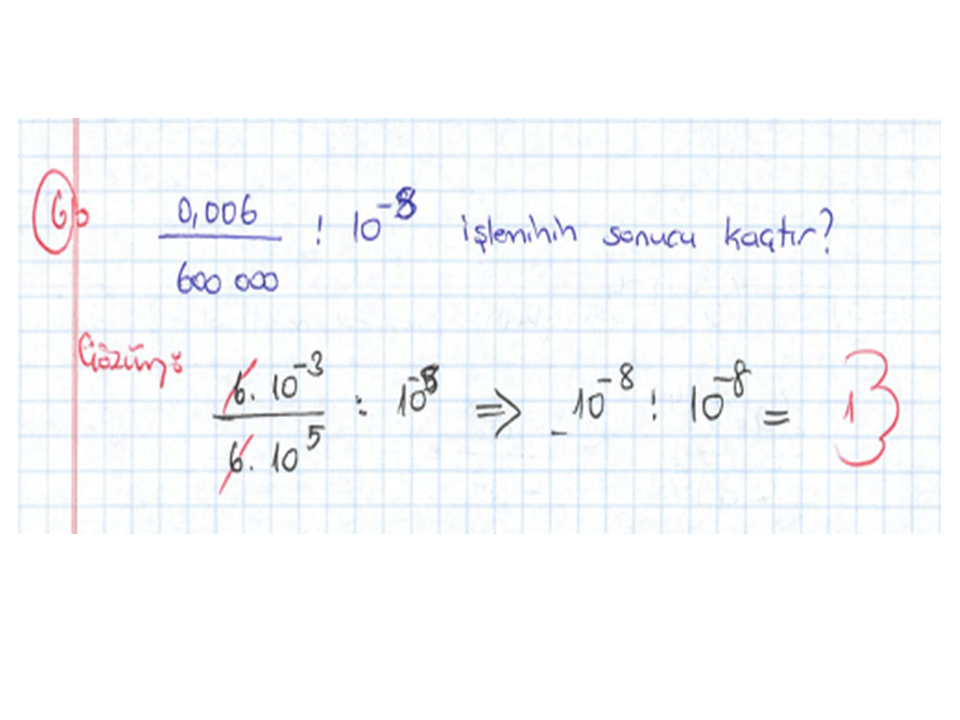 6) 0,006 / 600 000 : 10^-8 işleminin sonucu kaçtır?
Çözüm: 6. 10^-3 / 6. 10^5 : 10^-8 ⇒ 10^-8 : 10^-8 = 1